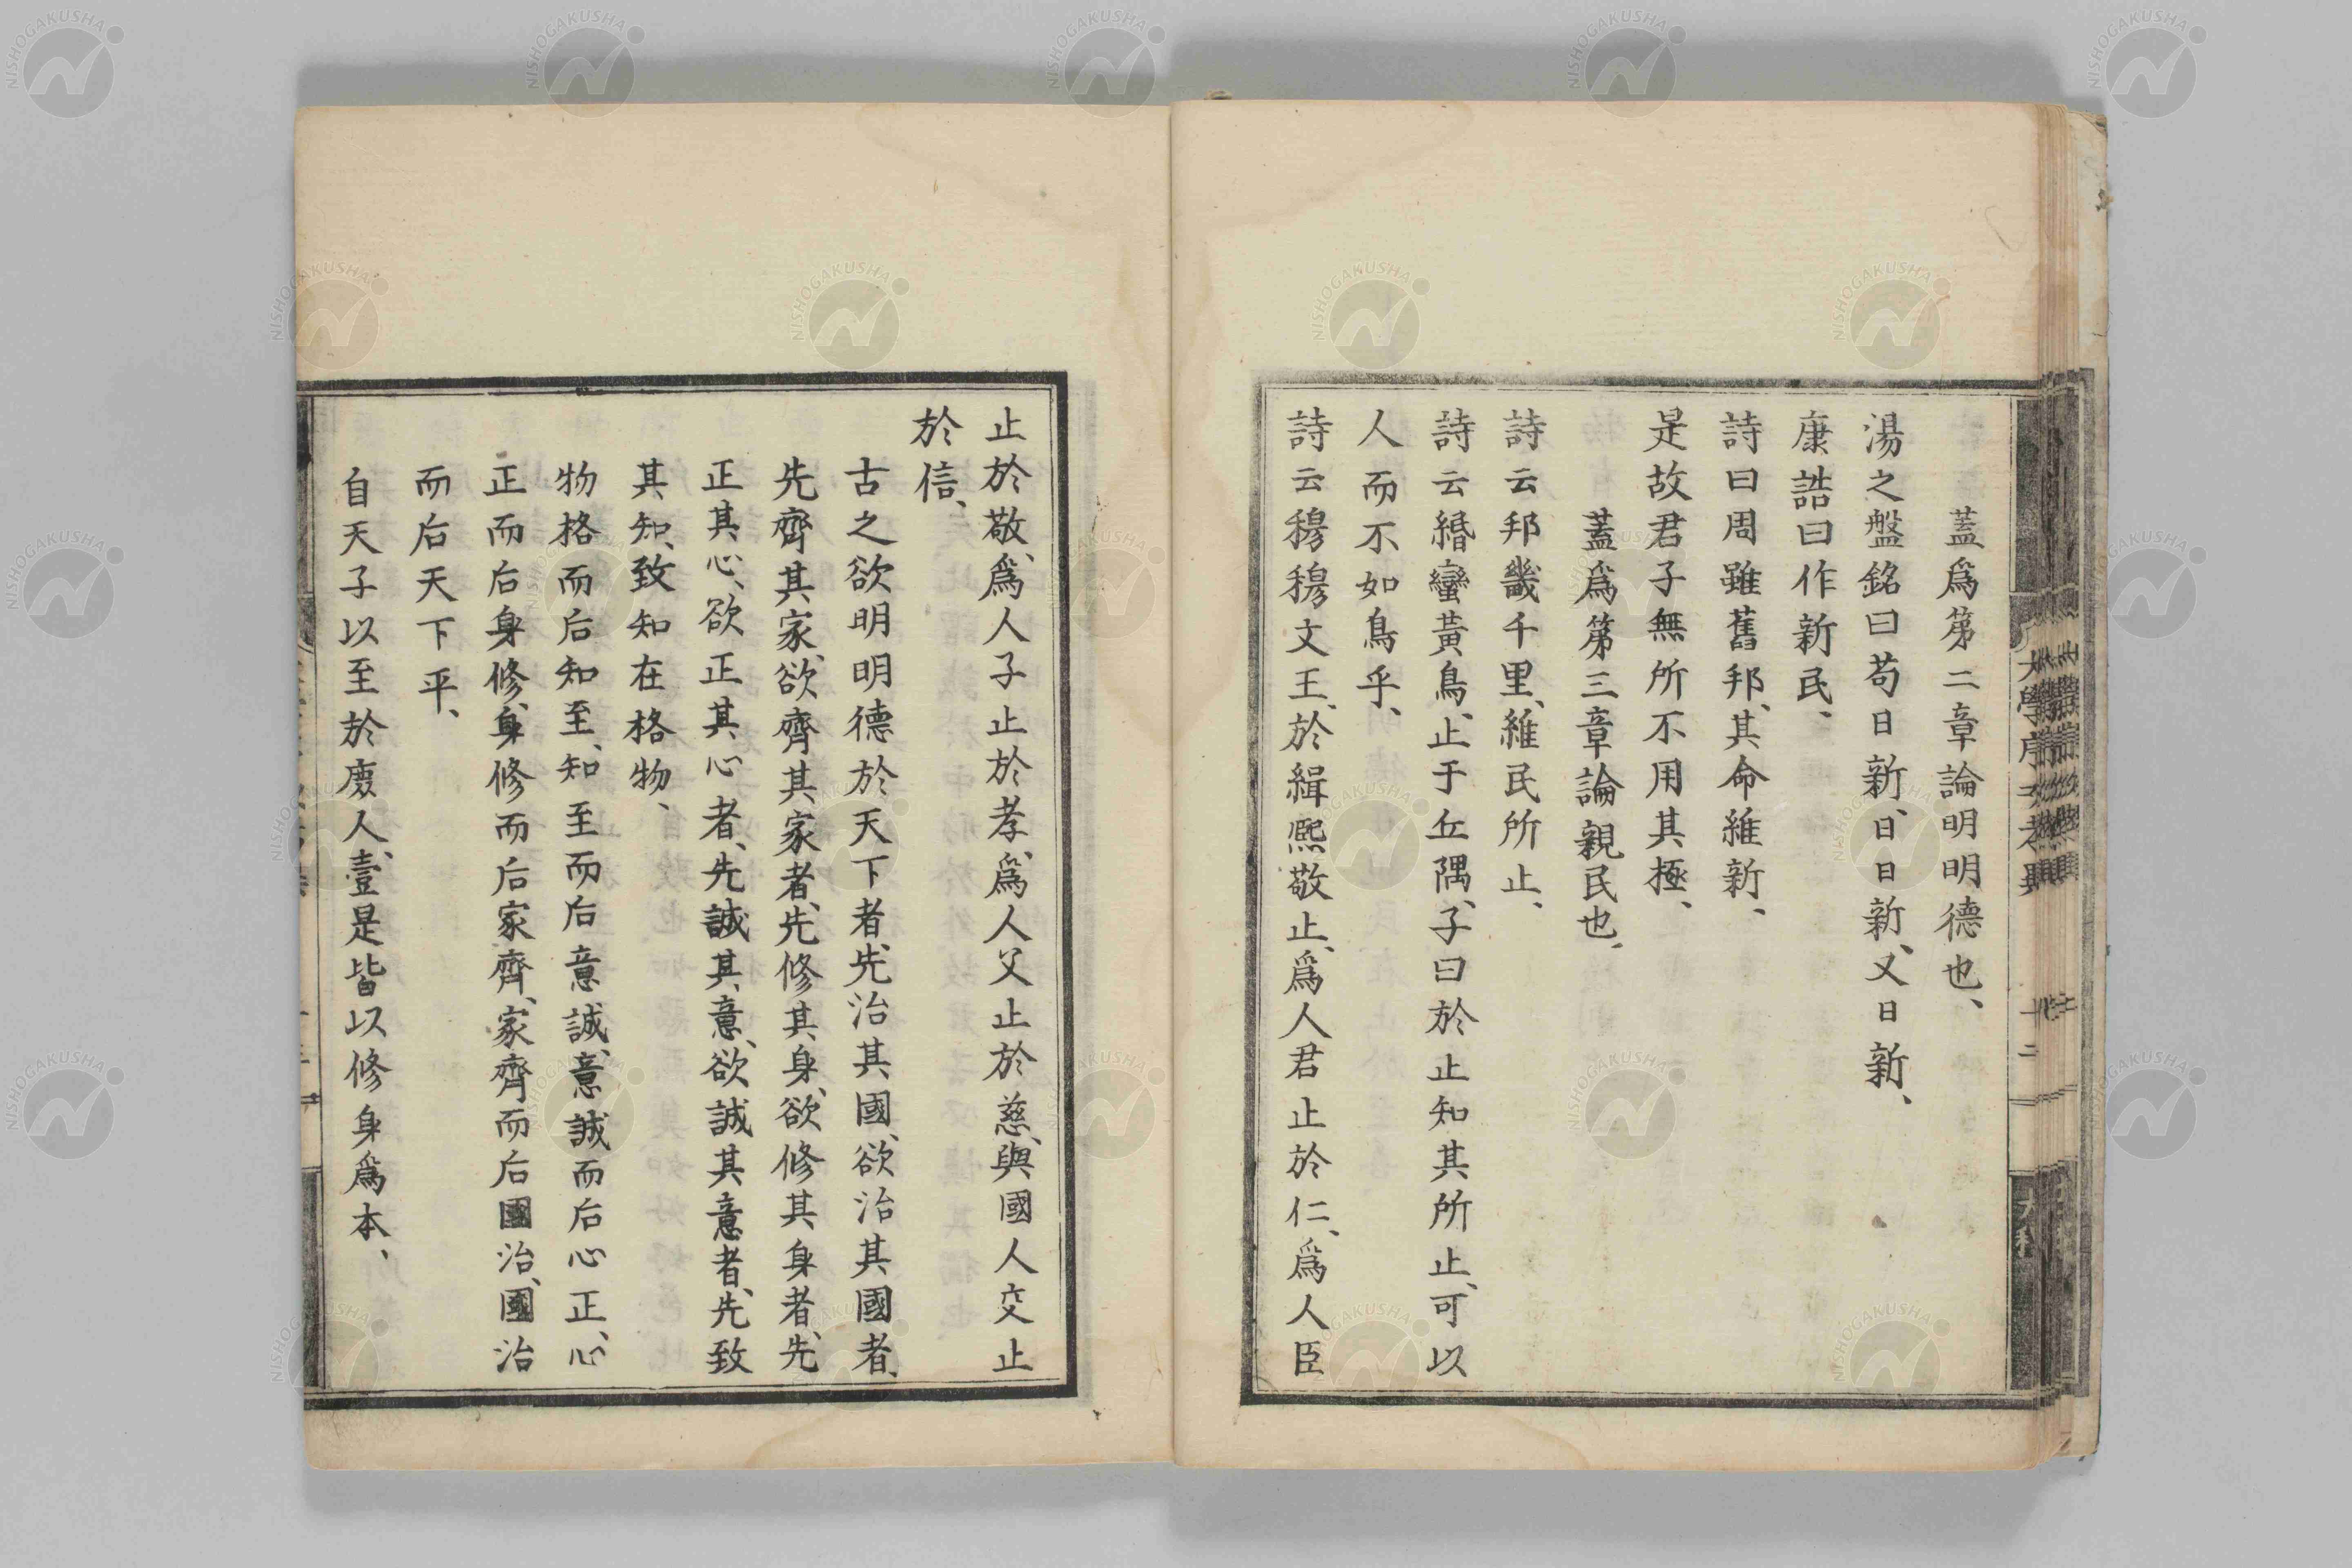 蓋爲第二章論明明德也、
湯之盤銘曰苟日新、日日新、又日新、
康誥曰作新民、
詩曰周雖舊邦、其命維新、
是故君子無所不用其極、
蓋爲第三章論親民也、
詩云邦畿千里、維民所止、
詩云緡蠻黃鳥、止于丘隅、子曰於止知其所止、可以
人而不如鳥乎、
詩云穆穆文王、於緝熙敬止、爲人君止於仁、爲人臣
止於敬、爲人子止於孝、爲人父止於慈、與國人交止
於信、
古之欲明明德於天下者、先治其國、欲治其國者、
先齊其家、欲齊其家者、先修其身、欲修其身者、先
正其心、欲正其心者、先誠其意、欲誠其意者、先致
其知、致知在格物、
物格而后知至、知至而后意誠、意誠而后心正、心
正而后身修、身修而后家齊、家齊而后國治、國治
而后天下平、
自天子以至於庶人、壹是皆以修身爲本、
大學序次考異
十二
NISHOGAKUSHA